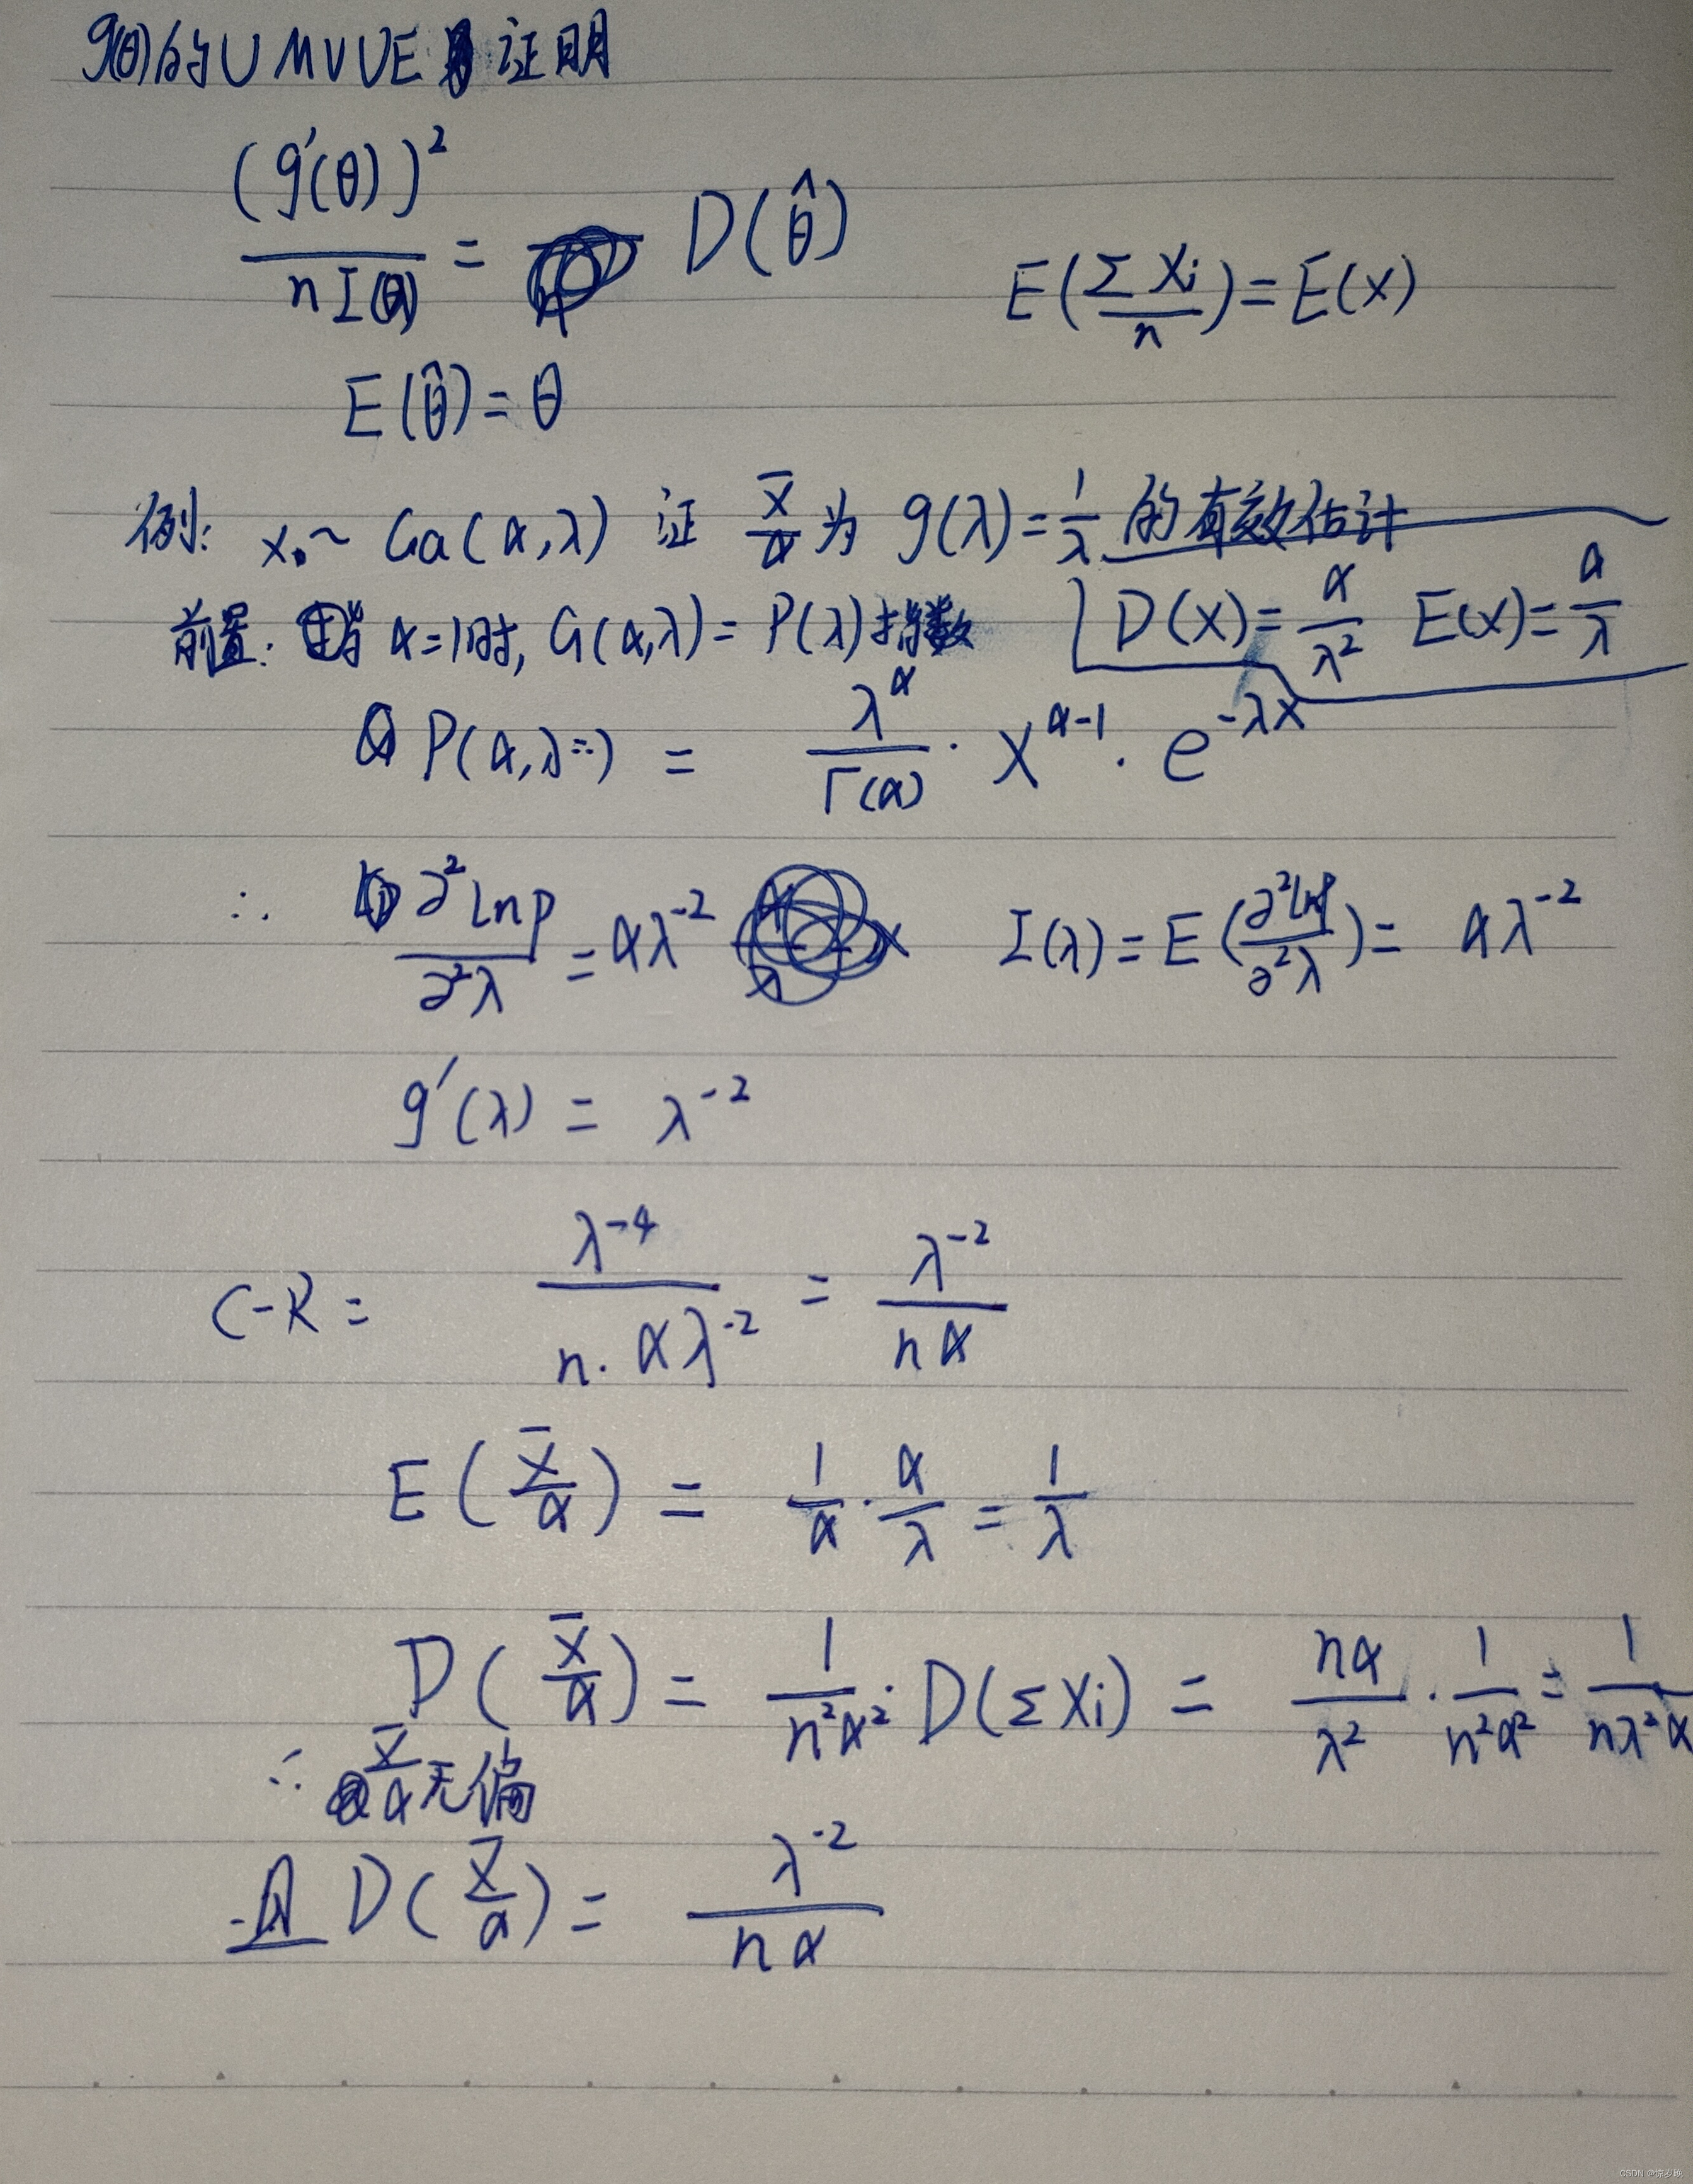 g(θ)的UMVUE 证明
(g'(θ))² / nI(θ) = D(θ̂)
E(ΣXi / n) = E(X)
E(θ̂) = θ
例: X ~ Ga(α,λ) 证 X̄/α 为 g(λ)=1/λ 的有效估计
前置: 当 α=1时, G(α,λ) = P(λ) 指数 D(X)=α/λ² E(X)=α/λ
P(α,λ) = λ^α / Γ(α) · X^(α-1) · e^(-λx)
∴ ∂²Lnp / ∂²λ = αλ⁻² I(λ) = E(∂²Lnp / ∂²λ) = αλ⁻²
g'(λ) = λ⁻²
C-R = λ⁻⁴ / n·αλ⁻² = λ⁻² / nα
E(X̄/α) = 1/α · α/λ = 1/λ
D(X̄/α) = 1/n²α² · D(ΣXi) = nα/λ² · 1/n²α² = 1/nλ²α
∴ X̄/α 无偏
且 D(X̄/α) = λ⁻² / nα